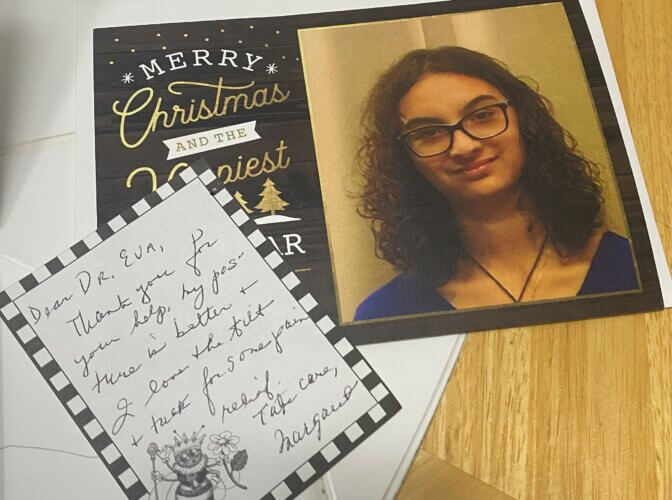 MERRY
Christmas
AND THE
piest
AR
Dear DR. EVA,
Thank you for
your help, my pos-
ture is better +
I love the tilt
+ tuck for some pain
relief.
Take care,
Margaret